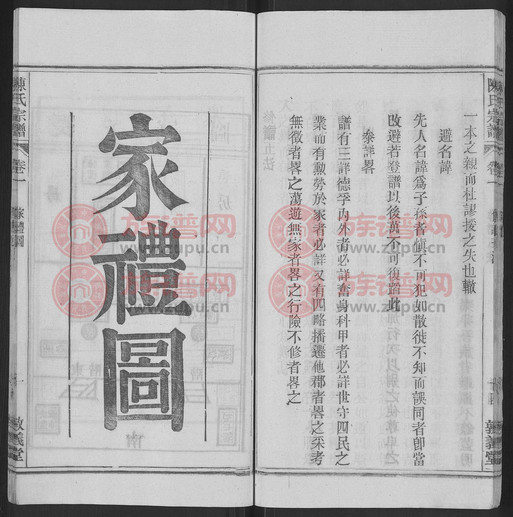 一本之親而杜謬接之失也轍
避名諱
先人名諱爲子孫者愼不可犯如散徙不知而誤同者卽當
改避若登譜以後萬不可復蹈此
叅詳畧
譜有三詳德孚內外者必詳奮身科甲者必詳世守四民之
業而有勲勞於家者必詳又有四路播遷他郡者畧之采考
無徵者畧之蕩遊無家者畧之行險不修者畧之
陳氏宗譜
卷一
敦義堂
家禮圖
陳氏宗譜
卷一
家禮圖
一
敦義堂
族譜网
www.zupu.cn